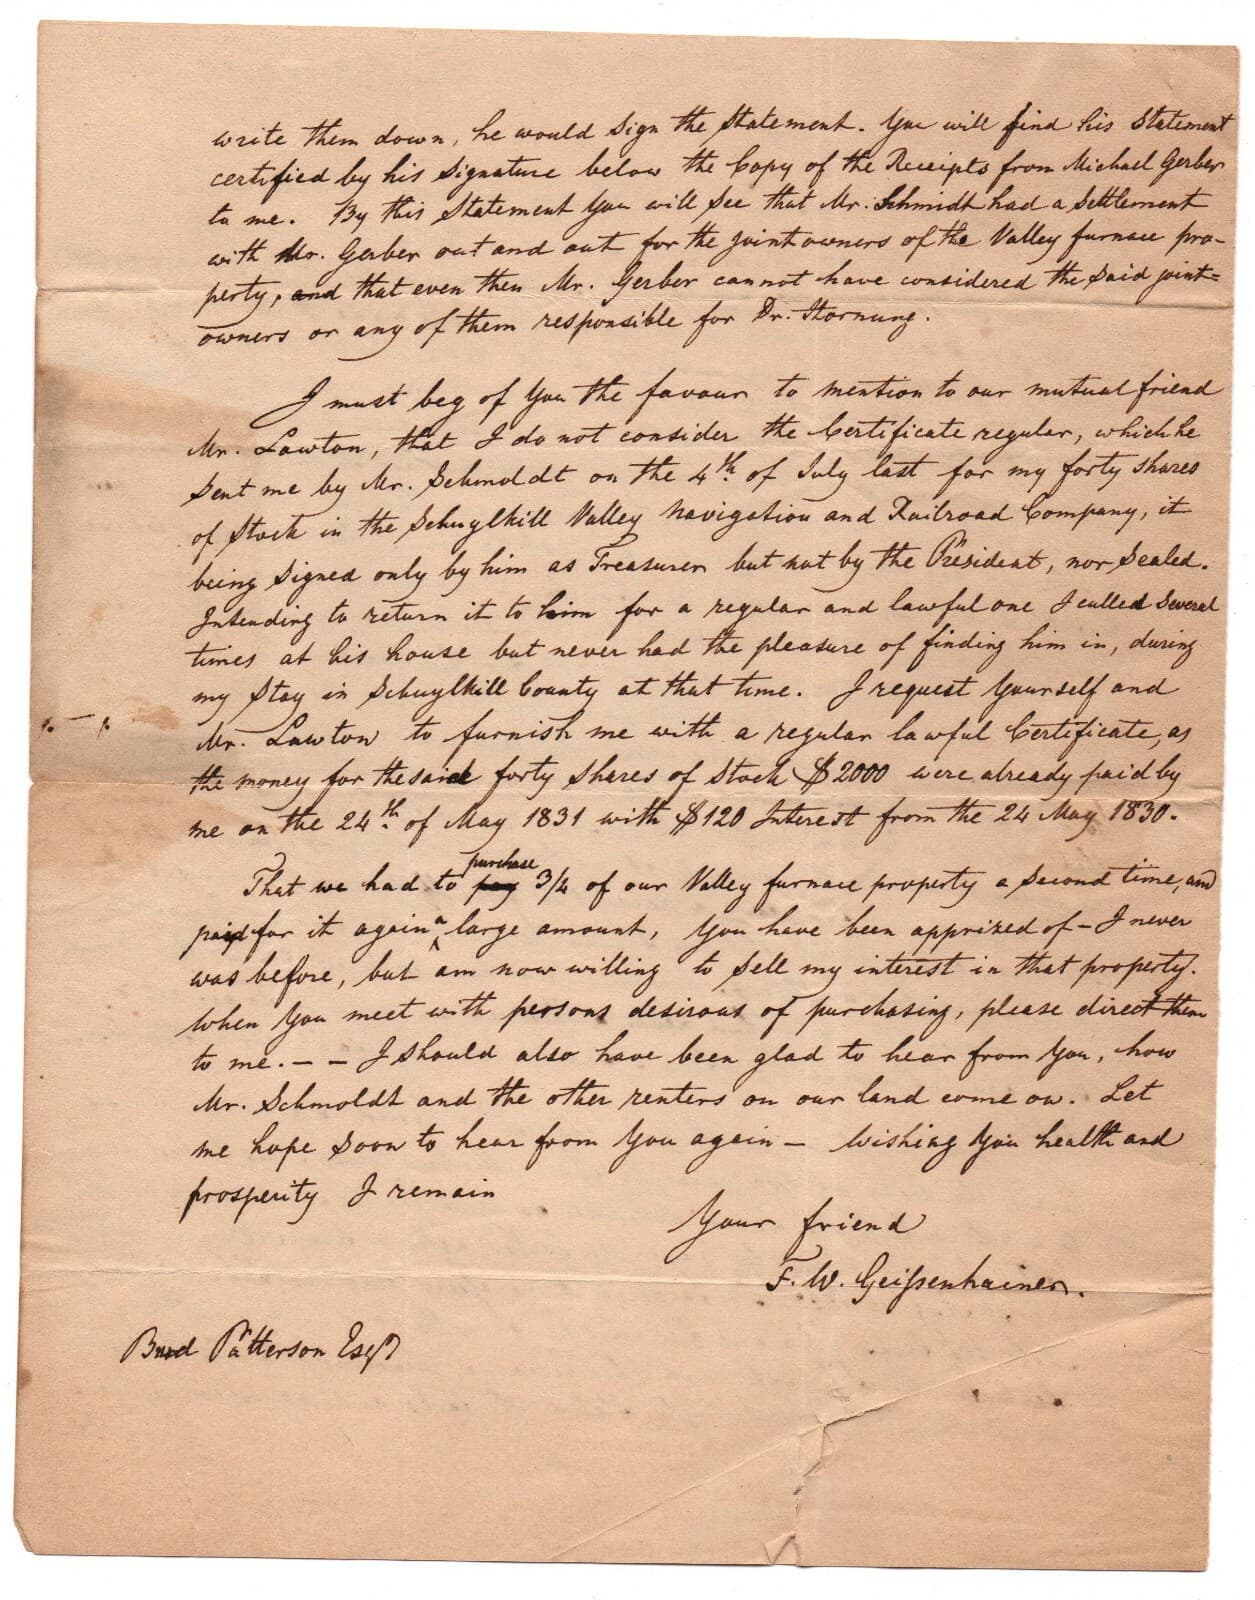 write them down, he would sign the Statement. You will find his Statement
certified by his Signature below the Copy of the Receipts from Michael Gerber
to me. By this Statement You will see that Mr. Schmidt had a Settlement
with Mr. Gerber out and out for the joint owners of the Valley furnace pro-
perty, and that even then Mr. Gerber cannot have considered the said joint=
owners or any of them responsible for Dr. Hornung.
I must beg of You the favour to mention to our mutual friend
Mr. Lawton, that I do not consider the Certificate regular, which he
sent me by Mr. Schmoldt on the 4th of July last for my forty shares
of Stock in the Schuylkill Valley Navigation and Railroad Company, it
being signed only by him as Treasurer but not by the President, nor Sealed.
Intending to return it to him for a regular and lawful one I called Several
times at his house but never had the pleasure of finding him in, during
my Stay in Schuylkill County at that time. I request Yourself and
Mr. Lawton to furnish me with a regular lawful Certificate, as
the money for the said forty shares of Stock $2000 were already paid by
me on the 24th of May 1831 with $120 Interest from the 24 May 1830.
purchase
That we had to pay 3/4 of our Valley furnace property a second time, and
paid for it again a large amount, You have been apprized of – I never
was before, but am now willing to sell my interest in that property.
When You meet with persons desirous of purchasing, please direct them
to me. – – I should also have been glad to hear from You, how
Mr. Schmoldt and the other renters on our land come on. Let
me hope soon to hear from You again – Wishing You health and
prosperity I remain
Your friend
F. W. Geißenhainer.
Burd Patterson Esqr